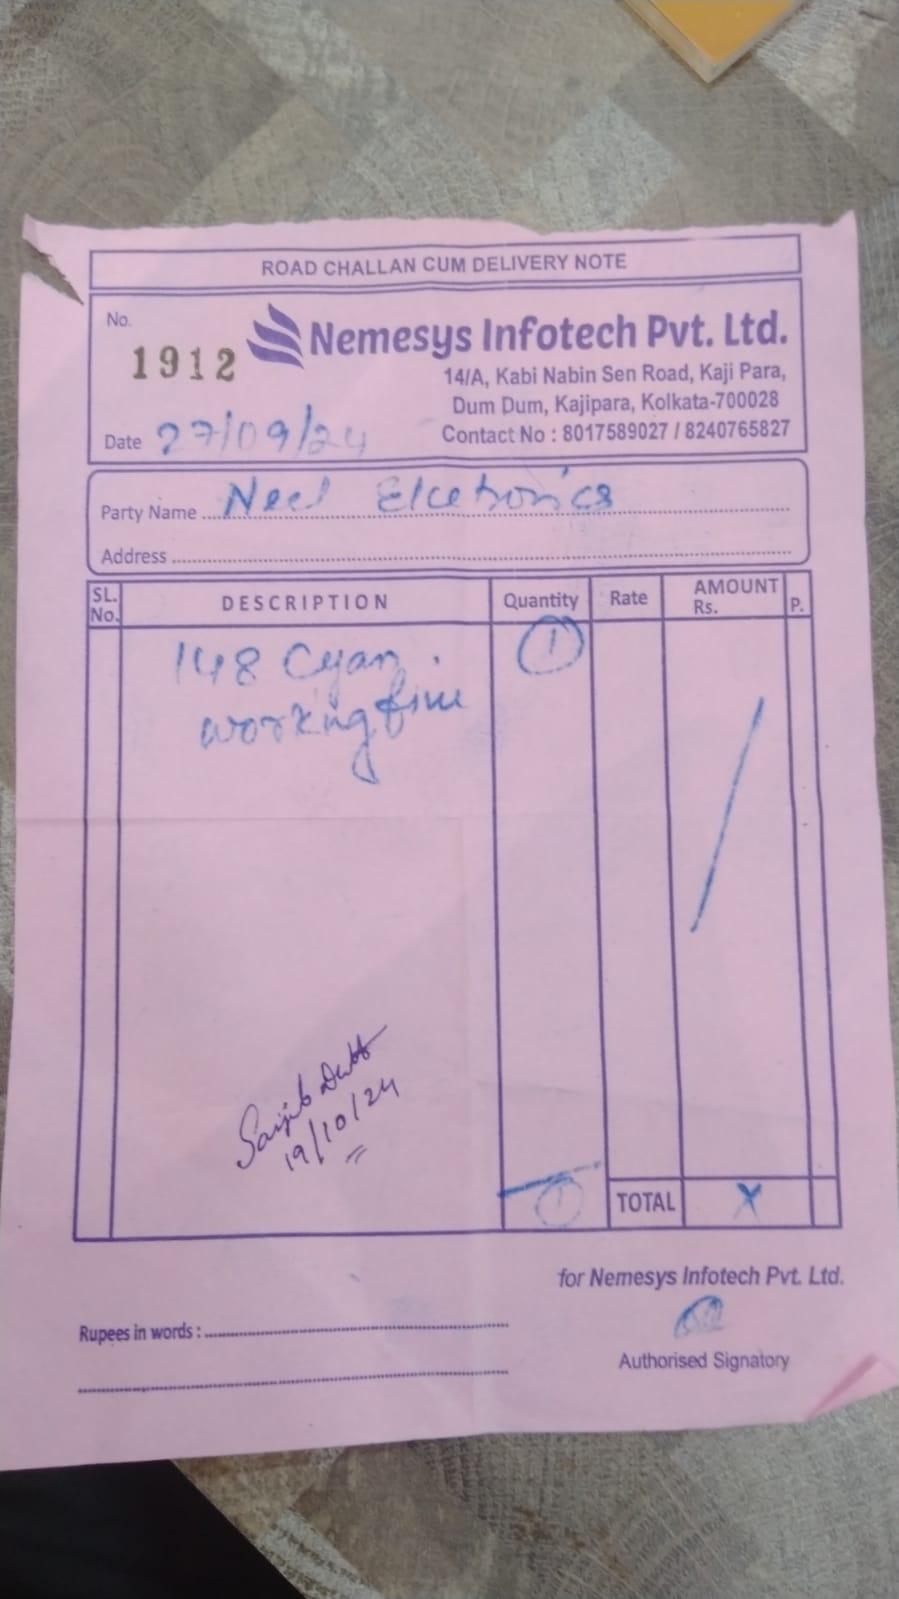 ROAD CHALLAN CUM DELIVERY NOTE
No.
1912
Nemesys Infotech Pvt. Ltd.
14/A, Kabi Nabin Sen Road, Kaji Para,
Dum Dum, Kajipara, Kolkata-700028
Contact No : 8017589027 / 8240765827
Date 27/09/24
Party Name Neel Elcetronics
Address
SL. No. DESCRIPTION Quantity Rate AMOUNT Rs. P.
148 Cyan. 1
working fine
Sanjib Dutt
19/10/24
1 TOTAL X
for Nemesys Infotech Pvt. Ltd.
Rupees in words :
Authorised Signatory